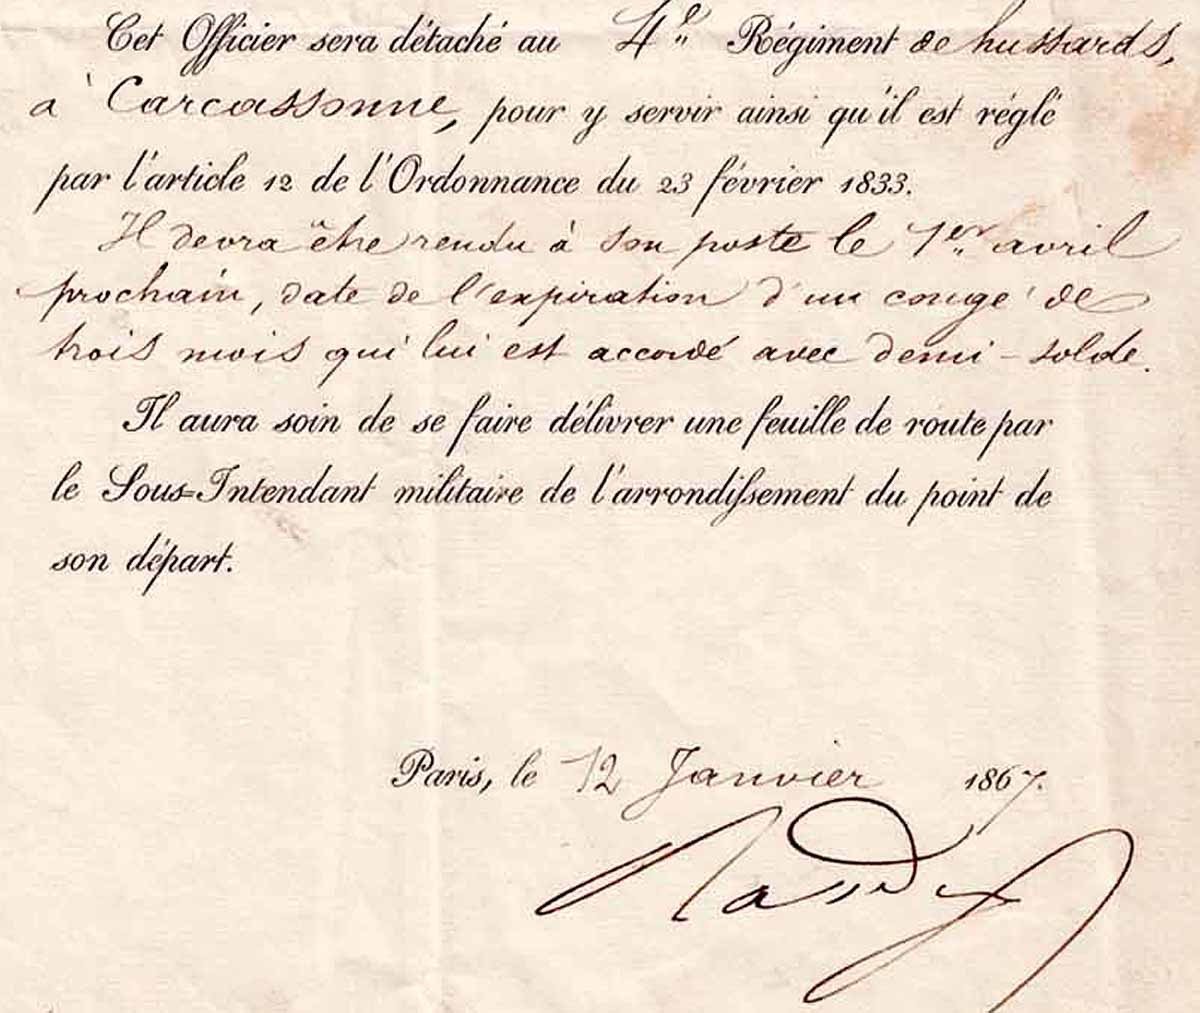 Cet Officier sera détaché au 4e Régiment de hussards,
à Carcassonne, pour y servir ainsi qu'il est réglé
par l'article 12 de l'Ordonnance du 23 février 1833.
Il devra être rendu à son poste le 1er avril
prochain, date de l'expiration d'un congé de
trois mois qui lui est accordé avec demi-solde.
Il aura soin de se faire délivrer une feuille de route par
le Sous-Intendant militaire de l'arrondissement du point de
son départ.
Paris, le 12 Janvier 1867.